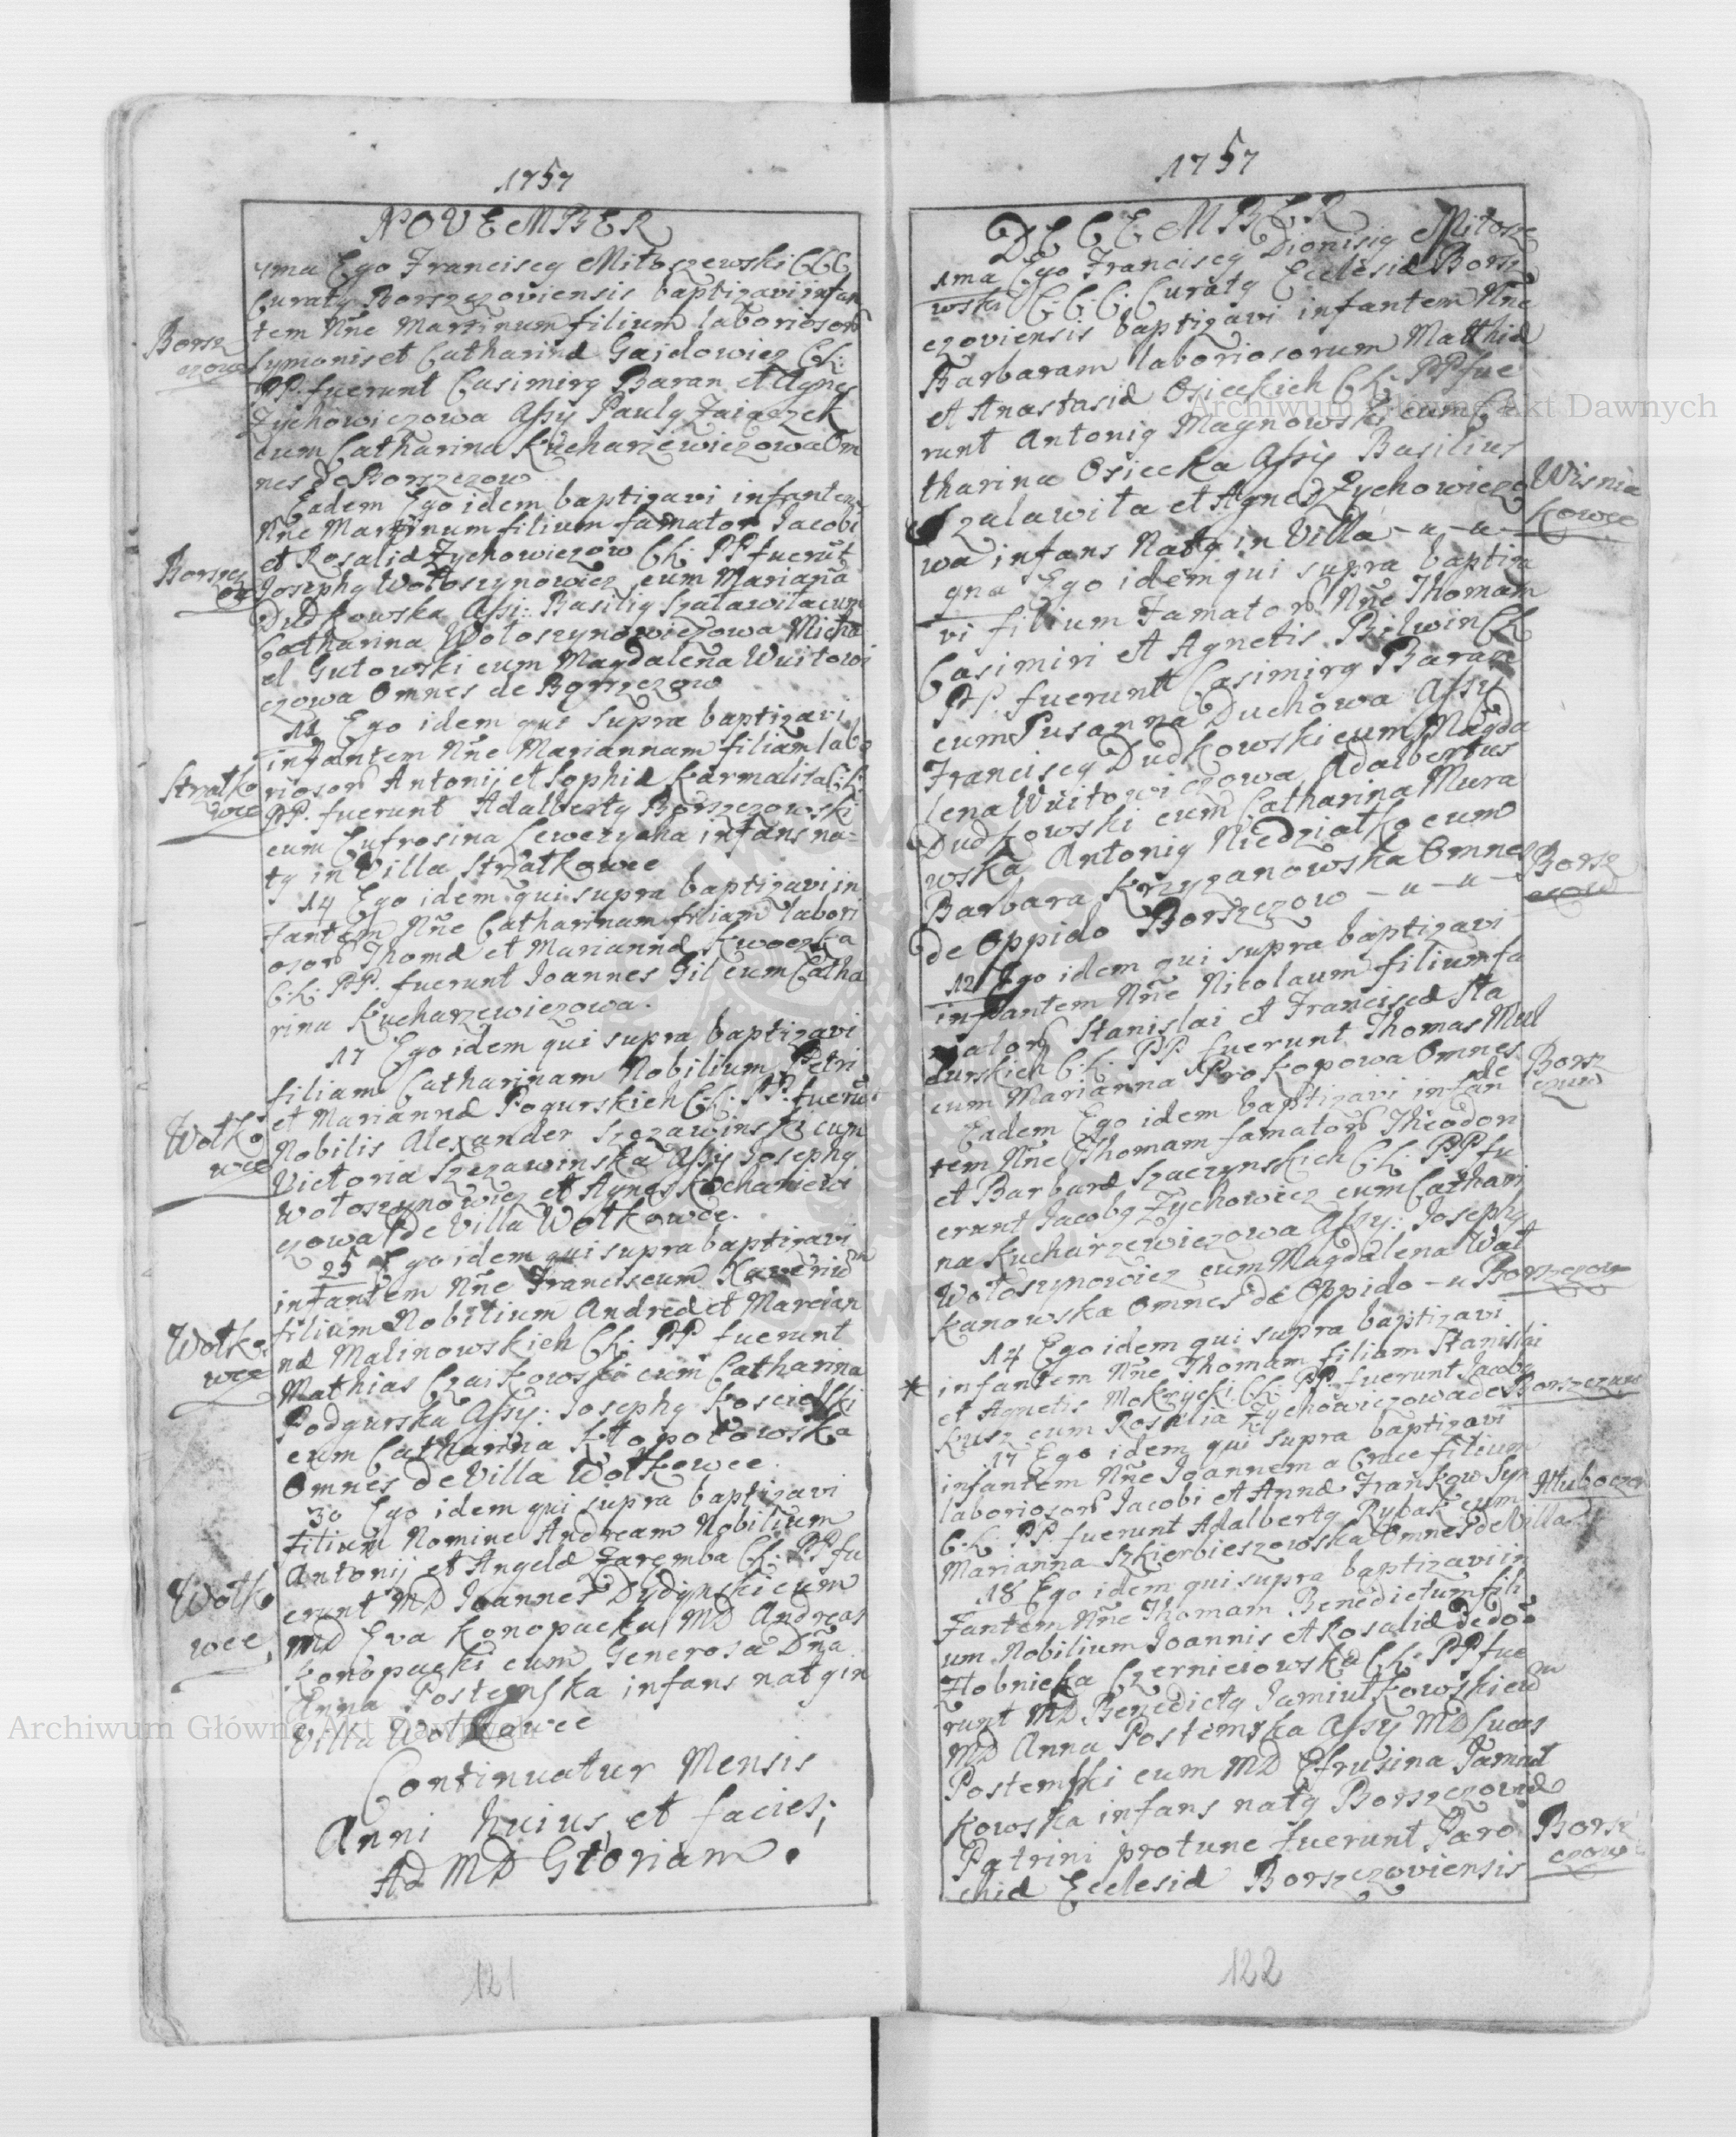 1757
NOVEMBER
1ma Ego Franciscq Mitoszewski CCC
Curatq Borszczoviensis baptizavi infan
tem Nñe Martinum filium laborioson
Symonis et Catharinæ Gaidowicz CL:
PP. fuerunt Casimirq Baran et Agnes
Zychowiczowa Assÿ Paulq Zaiączek
cum Catharina Kucharzewiczowa Om
nes de Borszczow
Borsz
czow
Eadem Ego idem baptizavi infantem
Nñe Martinum filium famator Jacobi
et Rosaliæ Zychowiczow CL: PP. fuerũt
Josephq Wołoszynowicz cum Marianã
Dudkowska Assi: Basiliq Szalawita cum
Catharina Wołoszynowiczowa Micha
el Gutowski cum Magdalena Wuitowi
czowa Omnes de Borszczow
Borszcz
ow
Ego idem qui supra baptizavi
infantem Nñe Mariannam filiam labo
riosor Antonij et Sophiæ Karmalita C:L:
PP. fuerunt Adalbertq Borszczowski
cum Eufrosina Lewerycha infans na=
tq in Villa Strzałkowce
Strałko
wce
14 Ego idem qui supra baptizavi in
fantem Nñe Catharinam filiam labori
osor Thomæ et Mariannæ Kwoczka
C:L: PP. fuerunt Joannes Gil cum Catha
rina Kucharzewiczowa.
17 Ego idem qui supra baptizavi
filiam Catharinam Nobilium Petri
et Mariannæ Pogurskich C:L: PP. fuerũt
Nobilis Alexander Szczawinski cum
Victoria Szczawinska Assÿ Josephq
Wołoszynowicz et Agnes Kochaniewi
czowa de Villa Wołkowce.
Wołko
wce
25 Ego idem qui supra baptizavi
infantem Nñe Franciscum Xaveriũm
filium Nobilium Andreæ et Marcian
næ Malinowskich CL: PP. fuerunt
Mathias Czaikowski cum Catharina
Podgurska Assÿ: Josephq Koscielski
cum Catharina Kłopotowska
Omnes de Villa Wołkowce.
Wołko
wce
30 Ego idem qui supra baptizavi
filium Nomine Andream Nobilium
Antonij et Angelæ Zaremba CL: PP fu
erunt MD Joannes Dydynski cum
MD Eva Konopacka MD Andreas
Konopacki cum Generosa Dña
Anna Postemska infans natq in
Villa Wołkowce
Wołko
wce
Continuatur Mensis
Anni huius et facies;
Ad MD Gloriam.
121
1757
DECEMBER
1ma Ego Franciscq Dionisiq Mitosze
wski C:C:C: Curatq Ecclesiæ Borsz
czoviensis baptizavi infantem Nñe
Barbaram laboriosorum Matthiæ
et Anastasiæ Osieckich CL: PP. fue
runt Antoniq Maynowski cum Ca
tharina Osiecka Assÿ Basilius
Szalawita et Agnes Zychowiczo
wa infans Natq in Villa - u - u -
Wisnia
kowce
Ego idem qui supra baptiza
vi filium Famator Nñe Thomam
Casimiri et Agnetis Bilwin CL
PP. fuerunt Casimirq Baran
cum Zusanna Duchowa Assÿ
Franciscq Dudkowski cum Magda
lena Wuitowiczowa Adalbertus
Dudkowski cum Catharina Mura
wska Antoniq Niedziałko cum
Barbara Krzyzanowska Omnes
de Oppido Borszczow - u - u -
Borsz
czow
12 Ego idem qui supra baptizavi
infantem Nñe Nicolaum filium fa
mator Stanislai et Franciscæ Sta
durskich C:L: PP. fuerunt Thomas Mul
cum Marianna Prokopowa Omnes de
Borsz
czow
Eadem Ego idem baptizavi infan
tem Nñe Thomam famator Theodori
et Barbaræ Szaczynskich C:L: PP. fu
erunt Jacobq Zychowicz cum Cathari
na Kucharzewiczowa Assÿ: Josephq
Wołoszynowicz cum Magdalena Wał
kanowska Omnes de Oppido - u Borszczow
14 Ego idem qui supra baptizavi
* infantem Nñe Thomam filium Stanislai
et Agnetis Mokrzycki CL: PP. fuerunt Jacobq
Kusz cum Rosalia Zychowiczowa de Borszczow
17 Ego idem qui supra baptizavi
infantem Nñe Joannem a Cruce filium
laborioson Jacobi et Annæ Frankow Syn
C:L: PP. fuerunt Adalbertq Rybak cum
Marianna Szkierbieszowska Omnes de Villa
Hłuboczek
18 Ego idem qui supra baptizavi in
fantem Nñe Thomam Benedictum fili
um Nobilium Joannis et Rosaliæ Dedoo
Złobnicka Czerniciowska CL: PP. fue
runt MD Benedictq Jamiutkowski cũ
MD Anna Postemska Assÿ MD Lucas
Postemski cum MD Efrusina Jamiut
kowska infans natq Borszczoviæ
Patrini protunc fuerunt Paro
chiæ Ecclesiæ Borszczoviensis
Borsz
czow
122
Archiwum Główne Akt Dawnych
Archiwum Główne Akt Dawnych